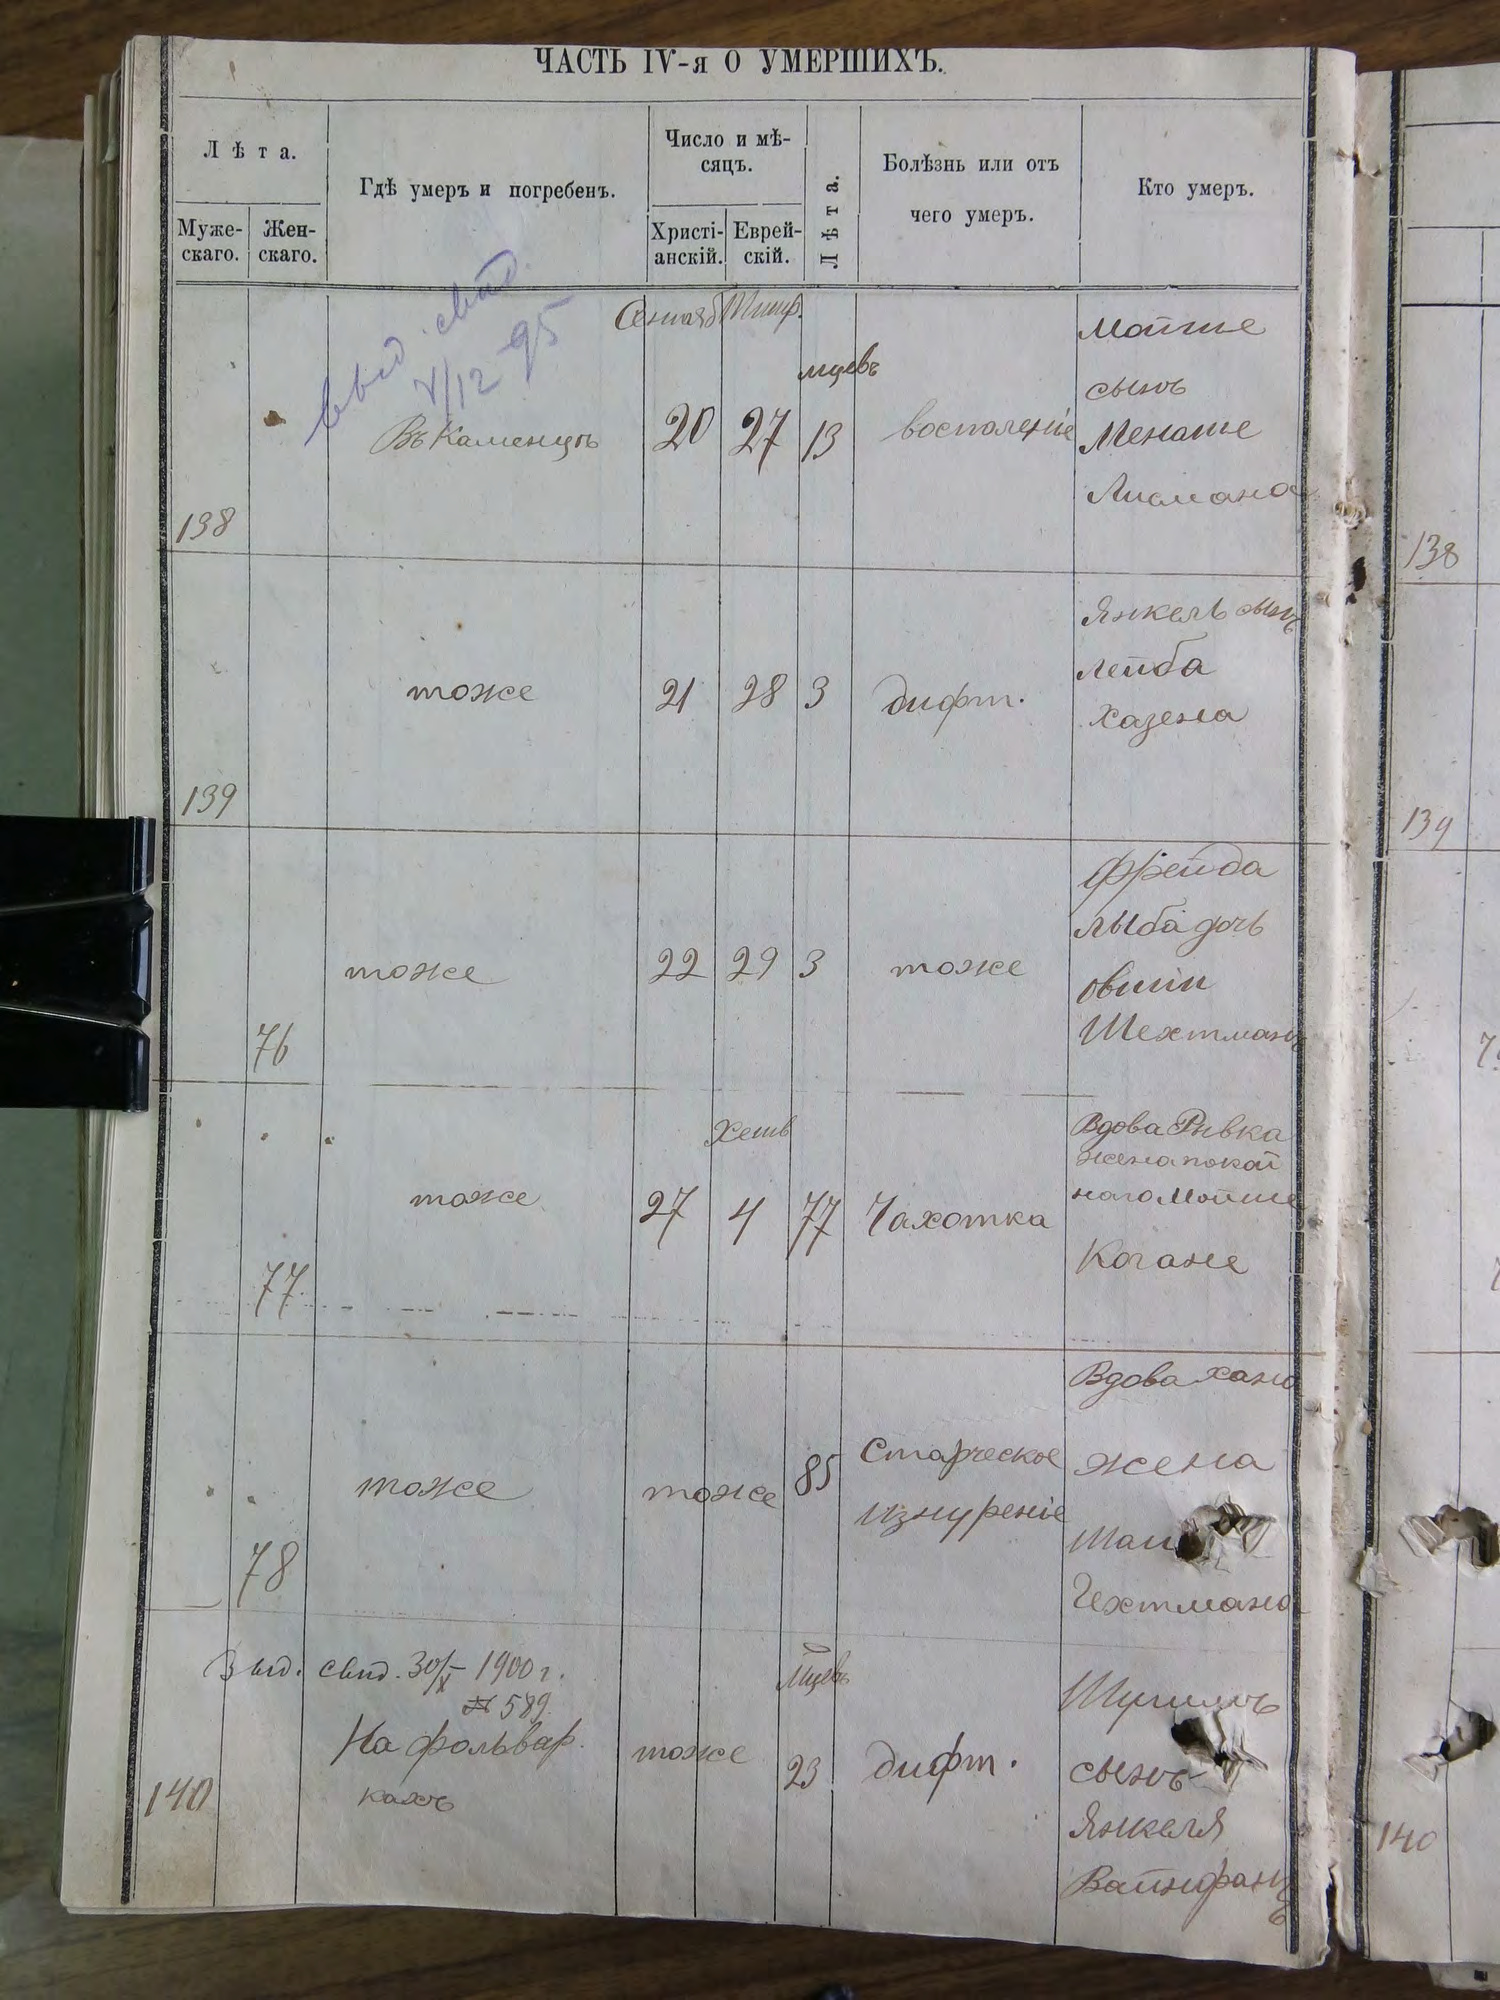 ЧАСТЬ IV-я О УМЕРШИХЪ.
Лѣта.
Муже-
скаго.
Жен-
скаго.
Гдѣ умеръ и погребенъ.
Число и мѣ-
сяцъ.
Христі-
анскій.
Еврей-
скій.
Лѣта.
Болѣзнь или отъ
чего умеръ.
Кто умеръ.
выд. свид.
95
138
Въ Каменцѣ
Сентяб
20
Тишр.
27
мцевъ
13
воспаленіе
Мойше
сынъ
Менаше
Лисмана
138
139
тоже
21
28
3
дифт.
Янкель сынъ
Лейба
Хазена
139
76
тоже
22
29
3
тоже
Фрейда
Лыба дочь
Овшіи
Шехтмана
77
тоже
27
Хешв
4
77
Чахотка
Вдова Рывка
жена покой
наго Мойше
Когане
78
тоже
тоже
85
Старческое
изнуреніе
Вдова Хана
жена
Гехтмана
Выд. свид. 30/X 1900 г.
№ 589
140
На фольвар.
кахъ
тоже
Мцевъ
23
дифт.
сынъ
Янкеля
Вайнфанъ
140